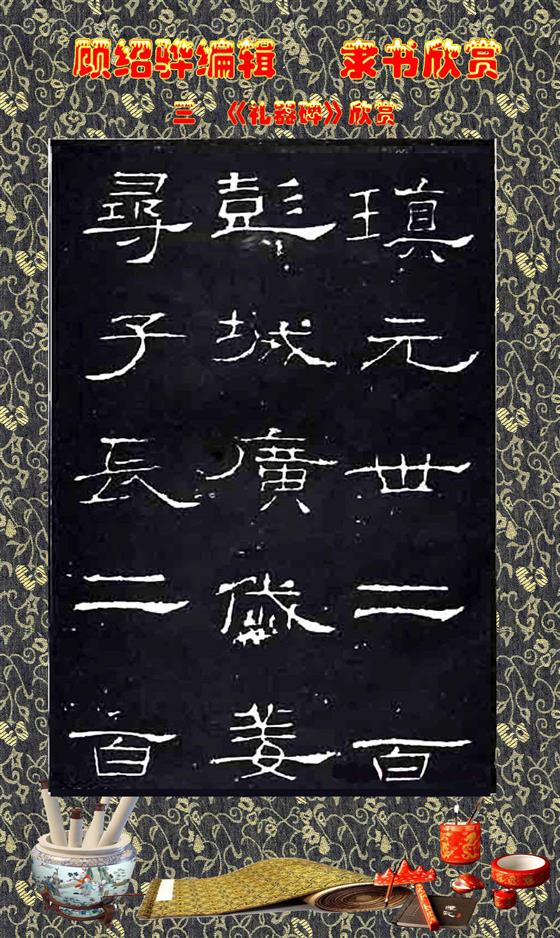 顾绍骅编辑 隶书欣赏
三 《礼器碑》欣赏
瑱元世二百
彭城廣戚姜
尋子長二百